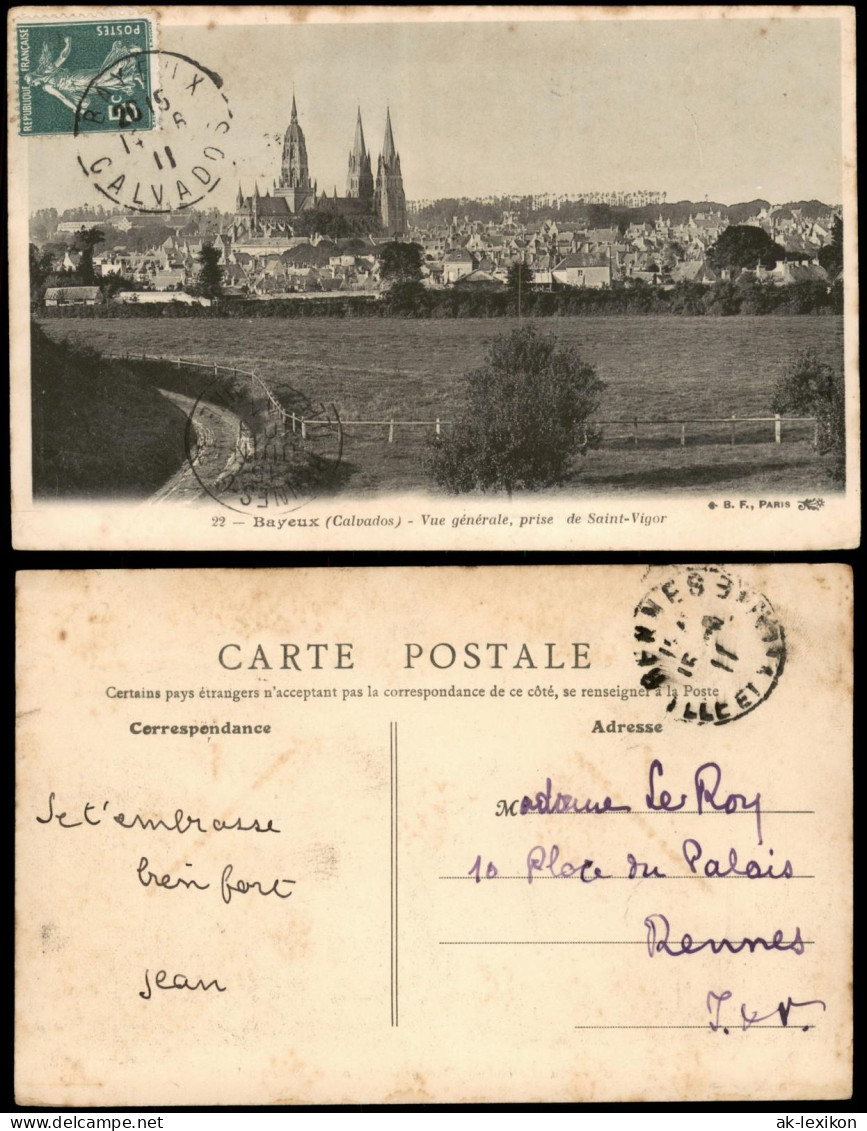 RÉPUBLIQUE FRANÇAISE
POSTES
BAYEUX
11
CALVADOS
22 — Bayeux (Calvados) - Vue générale, prise de Saint-Vigor
B. F., PARIS
CARTE POSTALE
Certains pays étrangers n'acceptant pas la correspondance de ce côté, se renseigner à la Poste
Correspondance
Adresse
Je t'embrasse
bien fort
Jean
Madame Le Roy
10 Place du Palais
Rennes
I. & V.
RENNES
11
ILLE ET
ak-lexikon